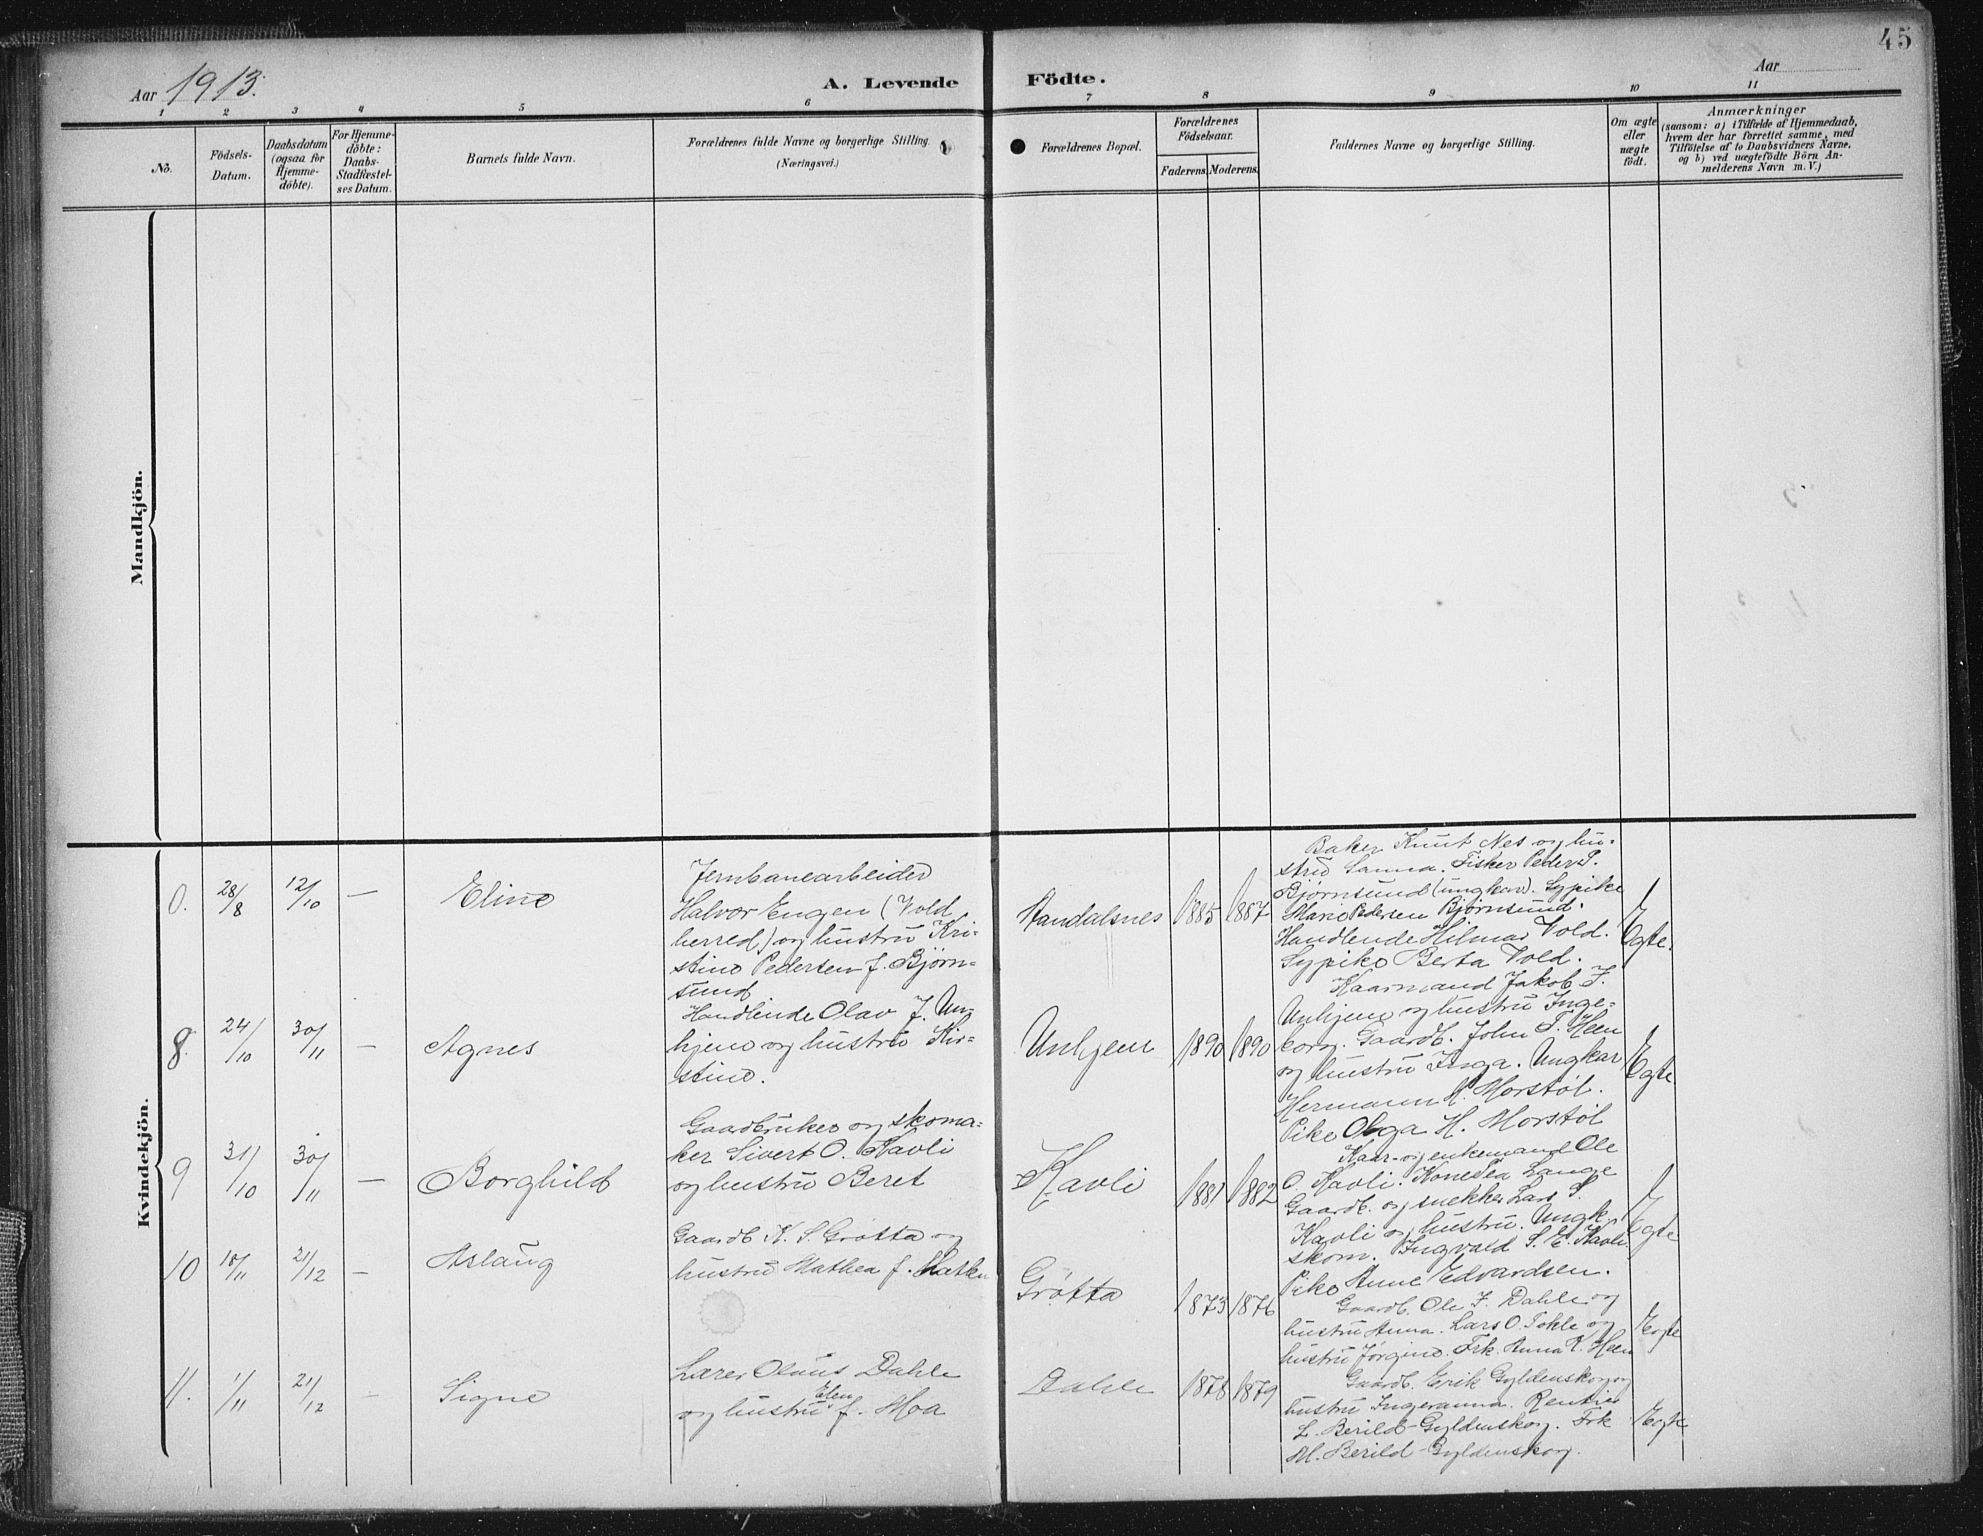 45
Aar 1913.
A. Levende Födte.
Aar
1 2 3 4 5 6 7 8 9 10 11
No.
Födsels-
Datum.
Daabsdatum
(ogsaa for
Hjemme-
döbte).
For Hjemme-
döbte:
Daabs-
Stadfæstel-
ses Datum.
Barnets fulde Navn.
Forældrenes fulde Navne og borgerlige Stilling.
(Næringsvei.)
Forældrenes Bopæl.
Forældrenes
Födselsaar.
Faderens. Moderens.
Faddernes Navne og borgerlige Stilling.
Om ægte
eller
uægte
födt.
Anmærkninger
(saasom: a) i Tilfælde af Hjemmedaab,
hvem der har forrettet samme, med
Tilföielse af to Daabsvidners Navne,
og b) ved uægtefödte Börn An-
melderens Navn m. V.)
Mandkjön.
Kvindekjön.
0. 28/8 12/10 — Eline
Jernbanearbeider
Halvor Engen (Vold
herred) og hustru Kri-
stine Pedersen f. Bjørn-
sund
Aandalsnes 1885 1887
Baker Knut Nes og hu-
stru Sanna. Fisker Peder P.
Bjørnsund (ungkar). Sypike
Marie Pedersen Bjørnsund.
Handlende Hilmar Vold.
Sypike Berta Vold.
Egte.
8. 24/10 30/11 — Agnes
Handlende Olav J. Un-
hjem og hustru Kir-
stine.
Unhjem 1890 1890
Kaarmand Jakob J.
Unhjem og hustru Inge-
borg. Gaardb. John T. Heen
og hustru Inga. Ungkar
Hermann H. Morstøl.
Pike Olga H. Morstøl
Egte
9 31/10 30/11 — Borghild
Gaardbruker og skoma-
ker Sivert O. Kavli
og hustru Beret
Kavli 1881 1882
Kaar- og enkemand Ole
O. Kavli. Kone Lange
Gaardb. og snekker Lars S.
Kavli og hustru. Ungk.
skom. Ingvald S. E. Kavli.
Pike Anne Edvardsen.
Egte
10 18/11 21/12 — Aslaug
Gaardb K. S. Grøtta og
hustru Mathea f.
Grøtta 1873 1876
Gaardb. Ole J. Dahle og
hustru Anna. Lars O. og
hustru Jørgine. Frk. Anna Heen
Egte
11. 1/11 21/12 — Signe
Lærer Olaus Dahle
og hustru Elen f. Moa
Dahle 1878 1879
Gaardb. Erik Gyldenskog og
hustru Ingeranna. Rentier
L. Berild-Gyldenskog. Frk
M. Berild-Gyldenskog.
Egte